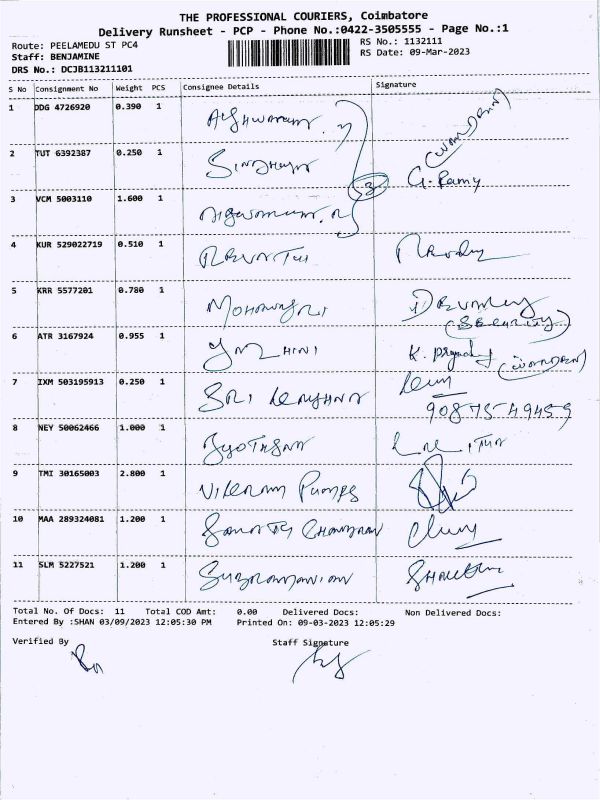 THE PROFESSIONAL COURIERS, Coimbatore
Delivery Runsheet - PCP - Phone No.:0422-3505555 - Page No.:1
Route: PEELAMEDU ST PC4
RS No.: 1132111
Staff: BENJAMINE
RS Date: 09-Mar-2023
DRS No.: DCJB113211101
S No Consignment No Weight PCS Consignee Details Signature
1 DDG 4726920 0.390 1
(WARDEN)
2 TUT 6392387 0.250 1
3 G. Ramy
3 VCM 5003110 1.600 1
4 KUR 529022719 0.510 1 REVATHI
5 KRR 5577201 0.780 1
(Security)
6 ATR 3167924 0.955 1 K.
(WARDEN)
7 IXM 503195913 0.250 1 SRI
9087549459
8 NEY 50062466 1.000 1
9 TMI 30165003 2.800 1 VIKRAM PUMPS
10 MAA 289324081 1.200 1
11 SLM 5227521 1.200 1 SUBRAMANIAN
Total No. Of Docs: 11 Total COD Amt: 0.00 Delivered Docs: Non Delivered Docs:
Entered By :SHAN 03/09/2023 12:05:30 PM Printed On: 09-03-2023 12:05:29
Verified By Staff Signature